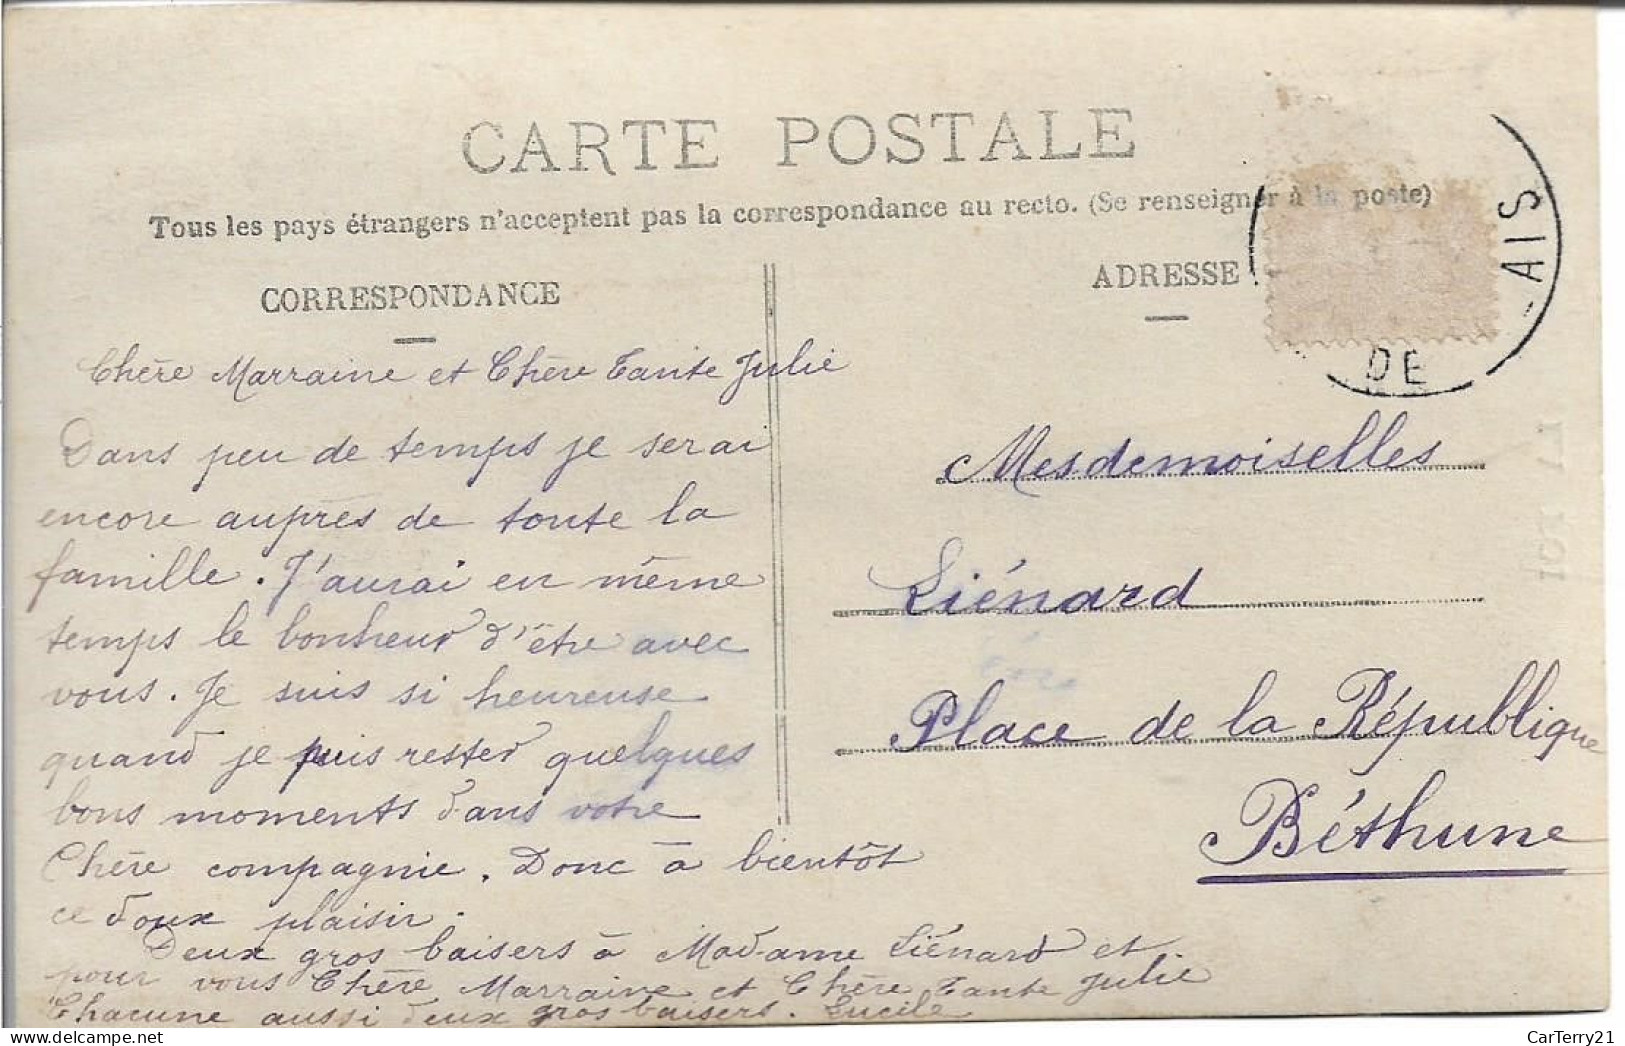 CARTE POSTALE
Tous les pays étrangers n'acceptent pas la correspondance au recto. (Se renseigner à la poste)
CORRESPONDANCE
ADRESSE
DE
AIS
Chère Marraine et Chère Tante Julie
Dans peu de temps je serai
encore auprès de toute la
famille. J'aurai en même
temps le bonheur d'être avec
vous. Je suis si heureuse
quand je puis rester quelques
bons moments dans votre
Chère compagnie. Donc à bientôt
ce doux plaisir.
Deux gros baisers à Madame Liénard et
pour vous Chère Marraine et Chère Tante Julie
Chacune aussi deux gros baisers. Lucile
Mesdemoiselles
Liénard
Place de la République
Béthune
CarTerry21